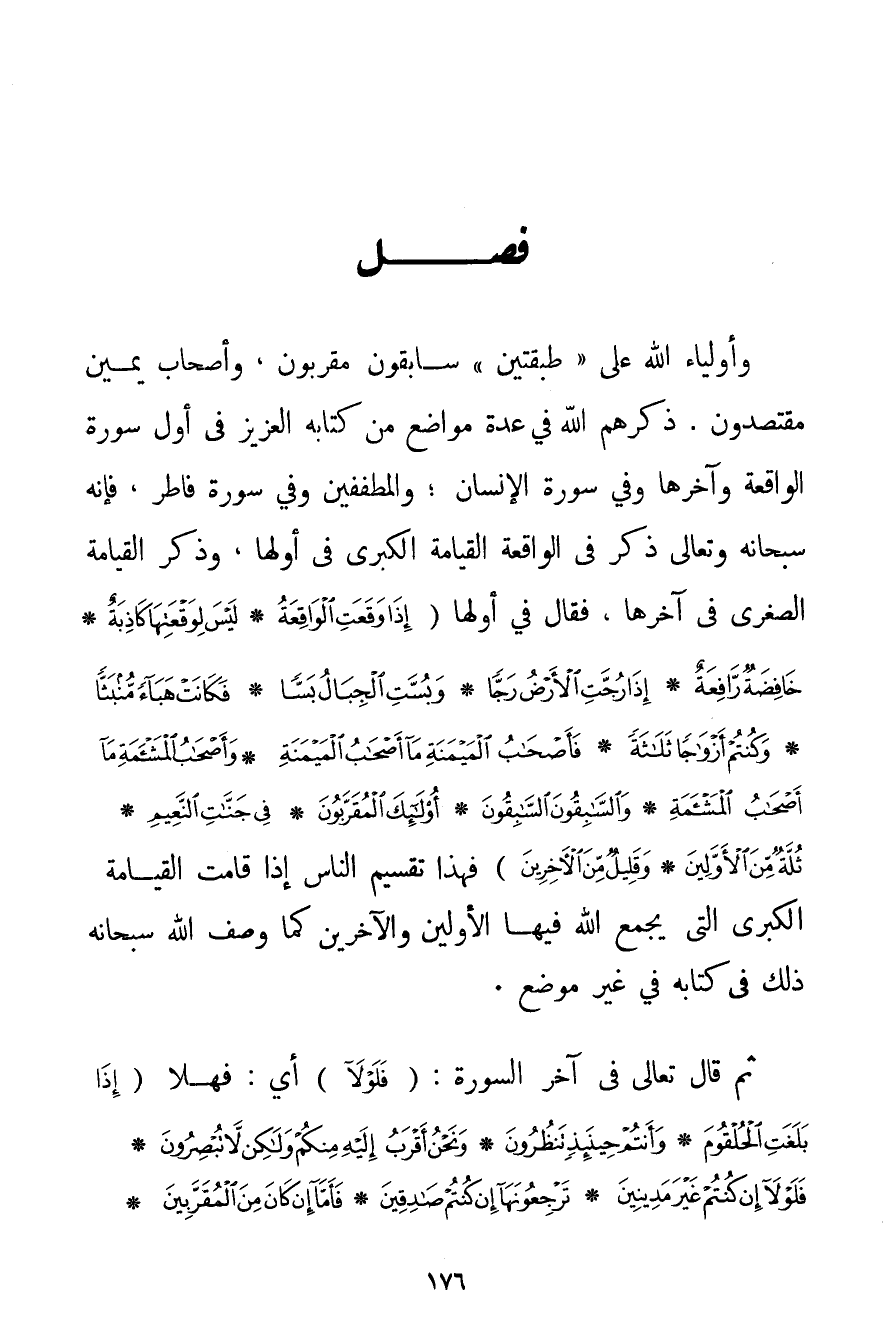 فصل
وأولياء الله على « طبقتين » سابقون مقربون ، وأصحاب يمين
مقتصدون . ذكرهم الله في عدة مواضع من كتابه العزيز فى أول سورة
الواقعة وآخرها وفي سورة الإنسان ؛ والمطففين وفي سورة فاطر ، فإنه
سبحانه وتعالى ذكر فى الواقعة القيامة الكبرى فى أولها ، وذكر القيامة
الصغرى فى آخرها ، فقال في أولها ( إِذَا وَقَعَتِ ٱلْوَاقِعَةُ * لَيْسَ لِوَقْعَتِهَا كَاذِبَةٌ *
خَافِضَةٌ رَّافِعَةٌ * إِذَا رُجَّتِ ٱلْأَرْضُ رَجًّا * وَبُسَّتِ ٱلْجِبَالُ بَسًّا * فَكَانَتْ هَبَآءً مُّنۢبَثًّا
* وَكُنتُمْ أَزْوَٰجًا ثَلَٰثَةً * فَأَصْحَٰبُ ٱلْمَيْمَنَةِ مَآ أَصْحَٰبُ ٱلْمَيْمَنَةِ * وَأَصْحَٰبُ ٱلْمَشْـَٔمَةِ مَآ
أَصْحَٰبُ ٱلْمَشْـَٔمَةِ * وَٱلسَّٰبِقُونَ ٱلسَّٰبِقُونَ * أُو۟لَٰٓئِكَ ٱلْمُقَرَّبُونَ * فِى جَنَّٰتِ ٱلنَّعِيمِ *
ثُلَّةٌ مِّنَ ٱلْأَوَّلِينَ * وَقَلِيلٌ مِّنَ ٱلْءَاخِرِينَ ) فهذا تقسيم الناس إذا قامت القيامة
الكبرى التى يجمع الله فيها الأولين والآخرين كما وصف الله سبحانه
ذلك فى كتابه في غير موضع .
ثم قال تعالى فى آخر السورة : ( فَلَوْلَآ ) أي : فهلا ( إِذَا
بَلَغَتِ ٱلْحُلْقُومَ * وَأَنتُمْ حِينَئِذٍ تَنظُرُونَ * وَنَحْنُ أَقْرَبُ إِلَيْهِ مِنكُمْ وَلَٰكِن لَّا تُبْصِرُونَ *
فَلَوْلَآ إِن كُنتُمْ غَيْرَ مَدِينِينَ * تَرْجِعُونَهَآ إِن كُنتُمْ صَٰدِقِينَ * فَأَمَّآ إِن كَانَ مِنَ ٱلْمُقَرَّبِينَ *
١٧٦